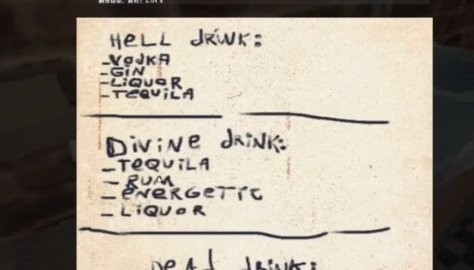 HELL drink:
-VODKA
-GIN
-LIQUOR
-TEQUILA
Divine drink:
-TEQUILA
-RUM
-ENERGETIC
-LIQUOR
Dead drink: